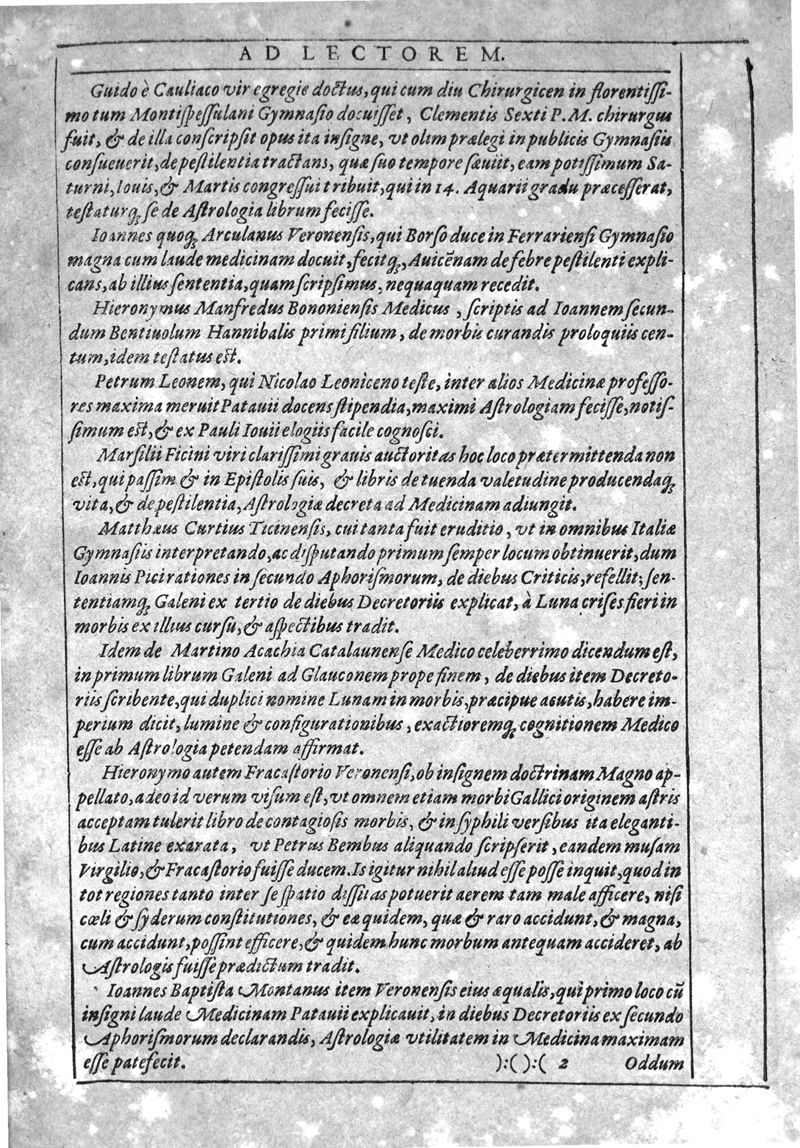 AD LECTOREM.
Guido è Cauliaco vir egregie doctus, qui cum diu Chirurgicen in florentissi-
mo tum Montispessulani Gymnasio docuisset, Clementis Sexti P. M. chirurgus
fuit, & de illa conscripsit opus ita insigne, vt olim prælegi in publicis Gymnasiis
consueuerit, de pestilentia tractans, quæ suo tempore sæuiit, eam potissimum Sa-
turni, Iouis, & Martis congressui tribuit, qui in 14. Aquarii gradu præcesserat,
testaturq; se de Astrologia librum fecisse.
Ioannes quoq; Arculanus Veronensis, qui Borso duce in Ferrariensi Gymnasio
magna cum laude medicinam docuit, fecitq;, Auicēnam de febre pestilenti expli-
cans, ab illius sententia, quam scripsimus, nequaquam recedit.
Hieronymus Manfredus Bononiensis Medicus, scriptis ad Ioannem secun-
dum Bentiuolum Hannibalis primi filium, de morbis curandis proloquiis cen-
tum, idem testatus est.
Petrum Leonem, qui Nicolao Leoniceno teste, inter alios Medicinæ professo-
res maxima meruit Patauii docens stipendia, maximi Astrologiam fecisse, notis-
simum est, & ex Pauli Iouii elogiis facile cognosci.
Marsilii Ficini viri clarissimi grauis auctoritas hoc loco prætermittenda non
est, qui passim & in Epistolis suis, & libris de tuenda valetudine producendaq;
vita, & de pestilentia, Astrologiæ decreta ad Medicinam adiungit.
Matthæus Curtius Ticinensis, cui tanta fuit eruditio, vt in omnibus Italiæ
Gymnasiis interpretando, ac disputando primum semper locum obtinuerit, dum
Ioannis Pici rationes in secundo Aphorismorum, de diebus Criticis, refellit; sen-
tentiamq; Galeni ex tertio de diebus Decretoriis explicat, à Luna crises fieri in
morbis ex illius cursu, & aspectibus tradit.
Idem de Martino Acachia Catalaunense Medico celeberrimo dicendum est,
in primum librum Galeni ad Glauconem prope finem, de diebus item Decreto-
riis scribente, qui duplici nomine Lunam in morbis, præcipue acutis, habere im-
perium dicit, lumine & configurationibus, exactioremq; cognitionem Medico
esse ab Astrologia petendam affirmat.
Hieronymo autem Fracastorio Veronensi, ob insignem doctrinam Magno ap-
pellato, adeo id verum visum est, vt omnem etiam morbi Gallici originem astris
acceptam tulerit libro de contagiosis morbis, & in syphili versibus ita eleganti-
bus Latine exarata, vt Petrus Bembus aliquando scripserit, eandem musam
Virgilio, & Fracastorio fuisse ducem. Is igitur nihil aliud esse posse inquit, quod in
tot regiones tanto inter se spatio dissitas potuerit aerem tam male afficere, nisi
cœli & syderum constitutiones, & ea quidem, quæ & raro accidunt, & magna,
cum accidunt, possint efficere, & quidem hunc morbum antequam accideret, ab
Astrologis fuisse prædictum tradit.
Ioannes Baptista Montanus item Veronensis eius æqualis, qui primo loco cū
insigni laude Medicinam Patauii explicauit, in diebus Decretoriis ex secundo
Aphorismorum declarandis, Astrologiæ vtilitatem in Medicina maximam
esse patefecit. ):( ):( 2 Oddum